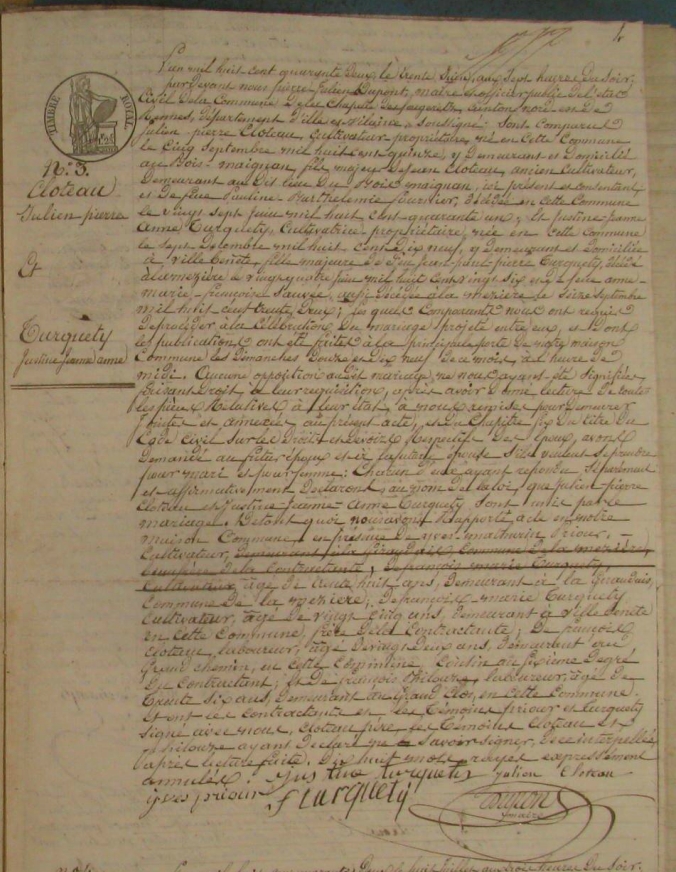 4
TIMBRE ROYAL
N.° 3.
Cloteau
Julien pierre
Et
Turquety
Justine jeanne anne
L'an mil huit cent quarante deux, le trente Juin, aux Sept heures du Soir;
pardevant nous pierre julien Dupont, maire et officier public de l'etat
Civil de la Commune de la Chapelle des fougeretz, Canton nord est De
Rennes, Département d'ille et vilaine, Soussigné: Sont Comparus
Julien-pierre Cloteau, Cultivateur propriétaire, né en Cette Commune
le Cinq Septembre mil huit cent quinze, y Demeurant et Domicilié
au Bois-maignan, fils majeur de Jean Cloteau, ancien Cultivateur,
Demeurant au dit lieu du Bois maignan, ici présent et consentant
et De feue Pauline Barthelemie fournier, Décédée en cette Commune
le Vingt Sept Juin mil huit cent quarante un; et Justine jeanne
Anne Turquety, Cultivatrice propriétaire, née en cette Commune
le Sept Décembre mil huit cent Dix neuf, y Demeurant et Domiciliée
à Ville benête, fille majeure de feu pierre Turquety, Décédé
à la mezière le Vingt quatre Juin mil huit Cent Vingt Six et de feue anne-
marie-françoise Sauvée, aussi Décédée à la mezière le Seize Septembre
mil huit cent trente Deux; lesquels Comparants nous ont requis
De procéder à la Célébration Du mariage projeté entre eux, et Dont
les publications ont été faites à la principale porte De notre maison
Commune les Dimanches Douze et Dix neuf De ce mois, à l'heure de
midi. Aucune opposition au dit mariage ne nous ayant été Signifiée
faisant Droit à leur requisition, après avoir Donné lecture De toutes
les pièces Relatives à leur état, à nous remises pour Demeurer
jointes et annexées au présent acte, et Du Chapitre six Du titre Du
Code Civil Sur les Droits et Devoirs Respectifs Des époux, avons
Demandé au futur époux et à la future épouse S'ils veulent Se prendre
pour mari et pour femme: Chacun D'eux ayant repondu Séparément
et affirmativement Déclarons, au nom De la loi, que Julien pierre
Cloteau et Justine-Jeanne-Anne Turquety Sont unis par le
mariage. De tout quoi nous avons Rapporté acte en notre
maison Commune, en présence De yves-mathurin Priour, -
Cultivateur, demeurant à la Giraudais Commune De la mezière,
De la Contractante; De françois marie Turquety
Cultivateur, âgé De trente huit ans, Demeurant à la Giraudais,
Commune De la mezière; De françois marie Turquety
Cultivateur, âgé De vingt Cinq ans, Demeurant à Ville benête
en Cette Commune, frère De la Contractante; De françois
Cloteau, laboureur, âgé De vingt Deux ans, Demeurant au
Grand Chemin, en cette Commune, Cousin au Sixième Degré
Du Contractant; et De françois Thélouze, laboureur, âgé De
Trente Six ans, Demeurant au Grand Clos, en Cette Commune.
Et ont les contractants et les témoins priour et turquety
Signé avec nous, Cloteau père, le témoins Cloteau et
Thélouze ayant Déclaré ne Savoir Signer, De ce interpellés
après lecture faite. Dix huit mots rayés expressément
annulés. Justine turquety Julien Cloteau
yves priour f turquety Dupont
maire